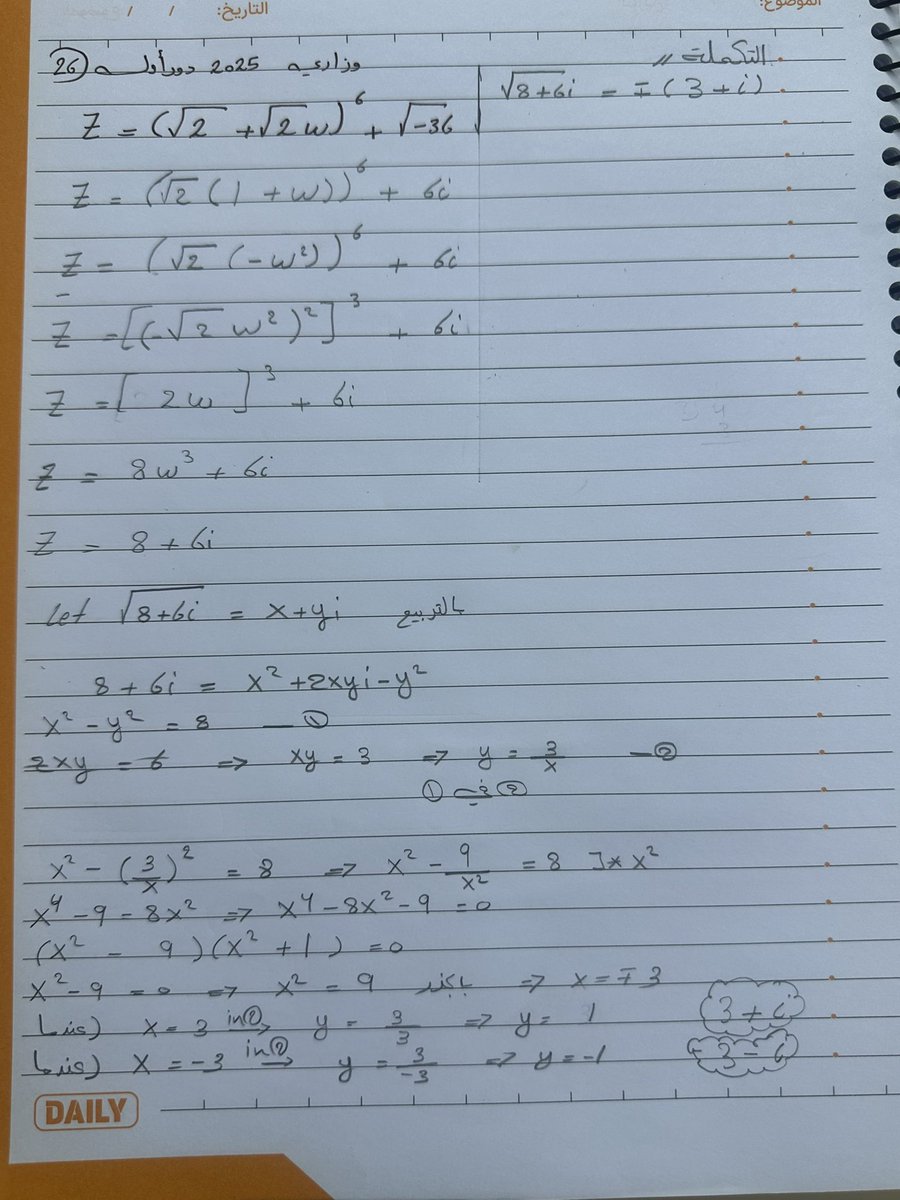 الموضوع:
التاريخ: / /
(26) وزاريه 2025 دور أول
Z = (√2 + √2 w)^6 + √-36
Z = (√2 (1 + w))^6 + 6i
Z = (√2 (-w²))^6 + 6i
Z = [(-√2 w²)²]^3 + 6i
Z = [ 2w ]^3 + 6i
Z = 8w³ + 6i
Z = 8 + 6i
let √8+6i = x+yi بالتربيع
8 + 6i = x² + 2xyi - y²
x² - y² = 8 — ①
2xy = 6 => xy = 3 => y = 3/x — ②
② في ①
x² - (3/x)² = 8 => x² - 9/x² = 8 ]* x²
x⁴ - 9 = 8x² => x⁴ - 8x² - 9 = 0
(x² - 9)(x² + 1) = 0
x² - 9 = 0 => x² = 9 بالجذر => x = ∓3
عندما x = 3 in② → y = 3/3 => y = 1 3 + i
عندما x = -3 in② → y = 3/-3 => y = -1 -3 - i
التكملة //
√8+6i = ∓(3+i)
DAILY